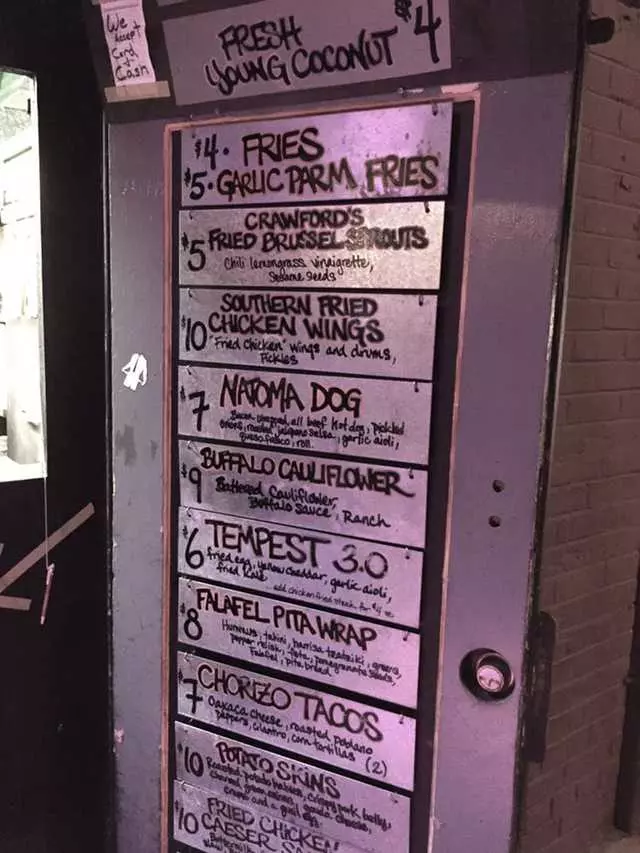 We
Accept
Card
+
Cash
FRESH $4
YOUNG COCONUT
$4. FRIES
$5. GARLIC PARM FRIES
CRAWFORD'S
$5 FRIED BRUSSEL SPROUTS
Chili lemongrass vinaigrette,
Sesame Seeds
SOUTHERN FRIED
$10 CHICKEN WINGS
"Fried chicken" wings and drums,
Pickles
$7 NATOMA DOG
Bacon wrapped, all beef hot dog, pickled
onions, roasted jalapeno salsa, garlic aioli,
queso fresco, roll.
BUFFALO CAULIFLOWER
$9 Battered Cauliflower,
Buffalo Sauce, Ranch
TEMPEST 3.0
$6 fried egg, yellow cheddar, garlic aioli,
fried kale
add chicken fried steak for $4
FALAFEL PITA WRAP
$8 Hummus, tahini, harrisa tzatziki, greens,
pepper relish, feta, pomegranate seeds,
Falafel, pita bread
CHORIZO TACOS
$7 Oaxaca cheese, roasted poblano
peppers, cilantro, corn tortillas (2)
POTATO SKINS
$10 Roasted potato halves, crispy pork belly,
charred green onions, gouda cheese,
creme and a quail egg
FRIED CHICKEN
$10 CAESER
Buttermilk